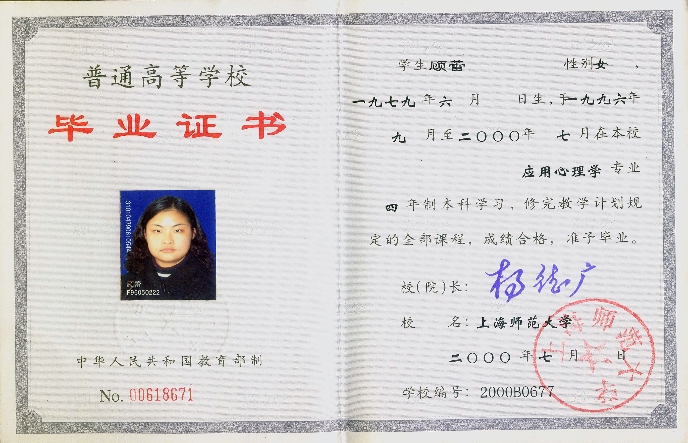 普通高等学校
毕业证书
F96050222
中华人民共和国教育部制
No. 00618671
学生顾蕾 性别女，
一九七九年六月 日生，于一九九六年
九 月至二〇〇〇年 七月在本校
应用心理学 专业
四 年制本科学习，修完教学计划规
定的全部课程，成绩合格，准予毕业。
校(院)长：杨德广
校 名：上海师范大学
二〇〇〇年七月 日
学校编号：2000B0677